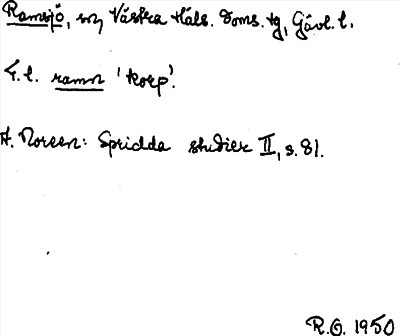 Ramsjö, sn, Västra Häls. Doms. tg, Gävl. l.
F. l. ramn 'korp'.
A. Noreen: Spridda studier II, s. 81.
R.O. 1950